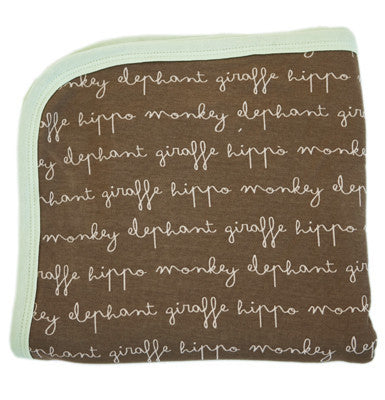 monkey elephant giraffe
giraffe hippo monkey elephant
elephant giraffe hippo
giraffe hippo monkey
monkey elephant giraffe hippo
elephant giraffe hippo monkey
giraffe hippo monkey elephant
elephant giraffe hippo monkey